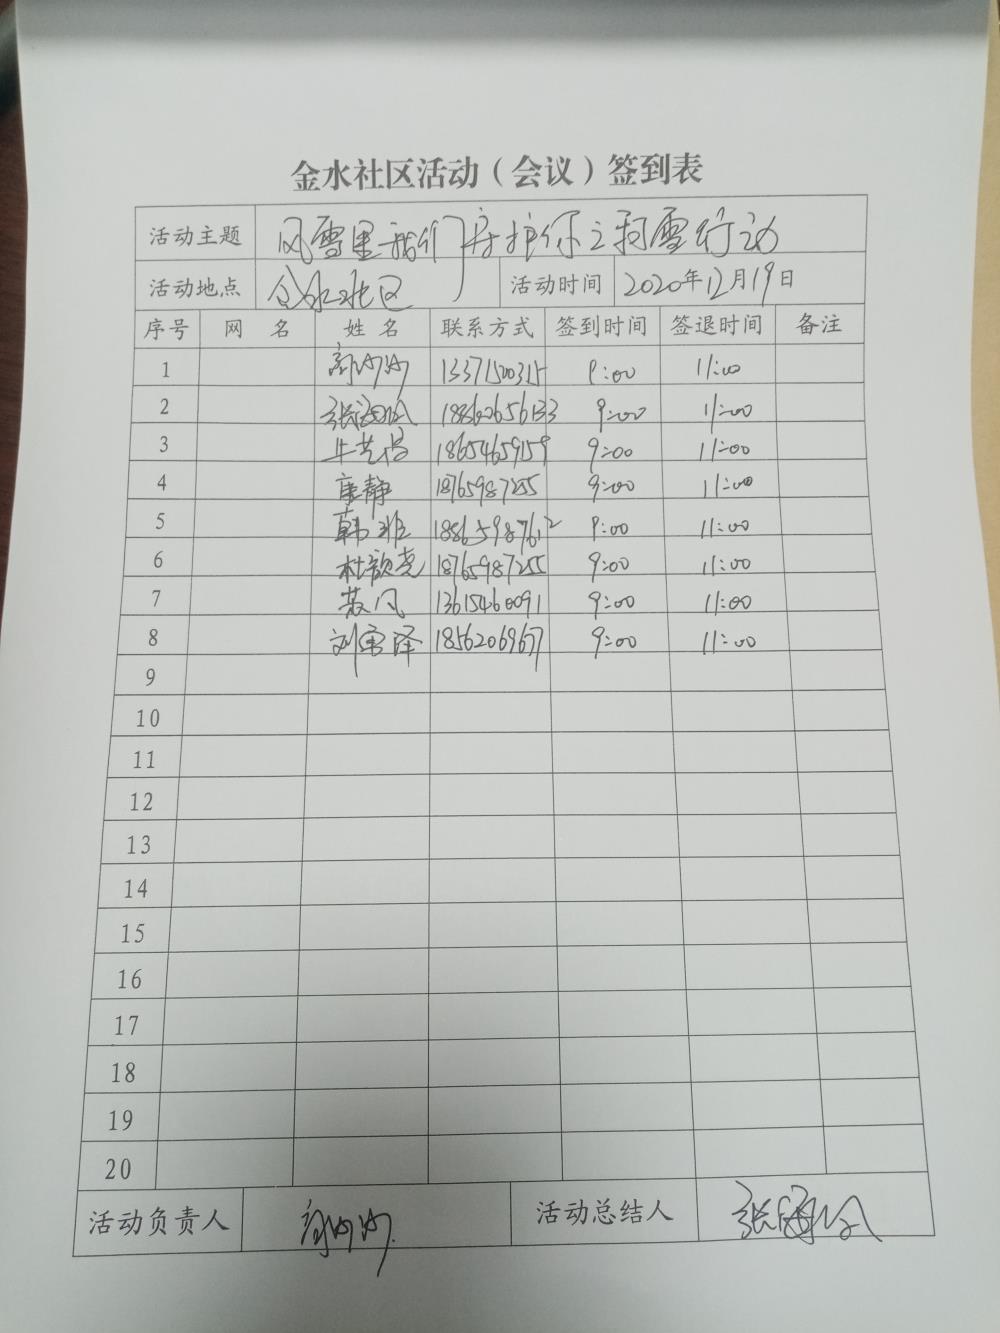 金水社区活动（会议）签到表
活动主题 风雪里我们守护你之扫雪行动
活动地点 金水社区 活动时间 2020年12月19日
序号 网 名 姓 名 联系方式 签到时间 签退时间 备注
1 13371500315 9:00 11:00
2 18860656133 9:00 11:00
3 18654659159 9:00 11:00
4 唐静 18765987255 9:00 11:00
5 韩班 18865987612 9:00 11:00
6 杜韵尧 18765987255 9:00 11:00
7 苏凡 13615460091 9:00 11:00
8 刘雷泽 18562069637 9:00 11:00
9
10
11
12
13
14
15
16
17
18
19
20
活动负责人 活动总结人